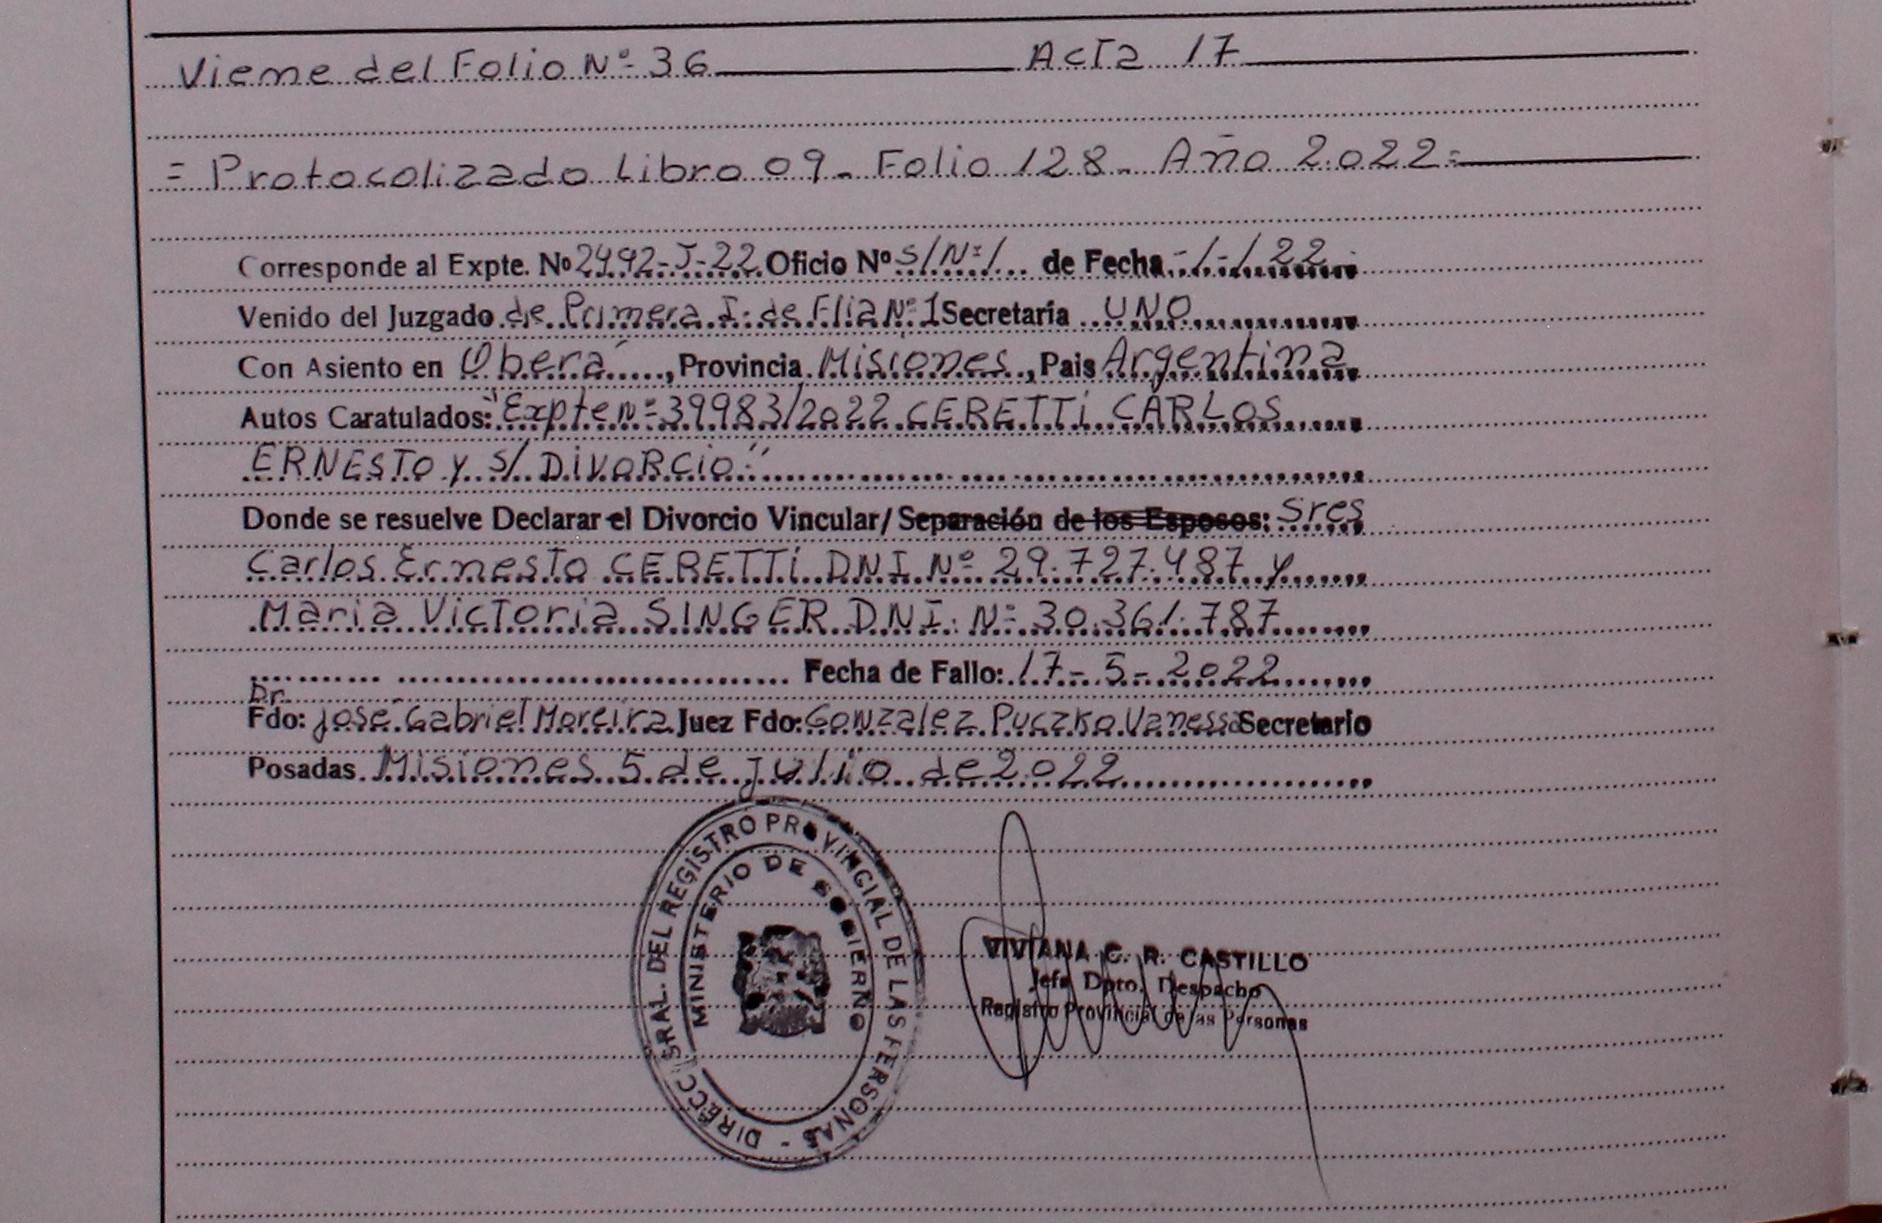 Viene del Folio Nº 36 Acta 17
= Protocolizado Libro 09 - Folio 128 - Año 2022=
Corresponde al Expte. Nº 2492-J-22 Oficio Nº S/Nº/ de Fecha -/-/22
Venido del Juzgado de Primera I. de Flia Nº 1 Secretaría UNO
Con Asiento en Oberá, Provincia Misiones, Pais Argentina
Autos Caratulados: "Expte nº 39983/2022 CERETTi CARLOS
ERNESTO y s/ DiVORCio"
Donde se resuelve Declarar el Divorcio Vincular/ Separación de los Esposos: Sres
Carlos Ernesto CERETTi DNI Nº 29.727.487 y
Maria Victoria SINGER DNI. Nº 30.361.787
Fecha de Fallo: 17-5-2022
Dr.
Fdo: José Gabriel Moreira Juez Fdo: Gonzalez Puczko Vanessa Secretario
Posadas Misiones 5 de julio de 2022
DIRECC GRAL. DEL REGISTRO PROVINCIAL DE LAS PERSONAS -
MINISTERIO DE GOBIERNO
VIVIANA C. R. CASTILLO
Jefa Dpto. Despacho
Registro Provincial de las Personas